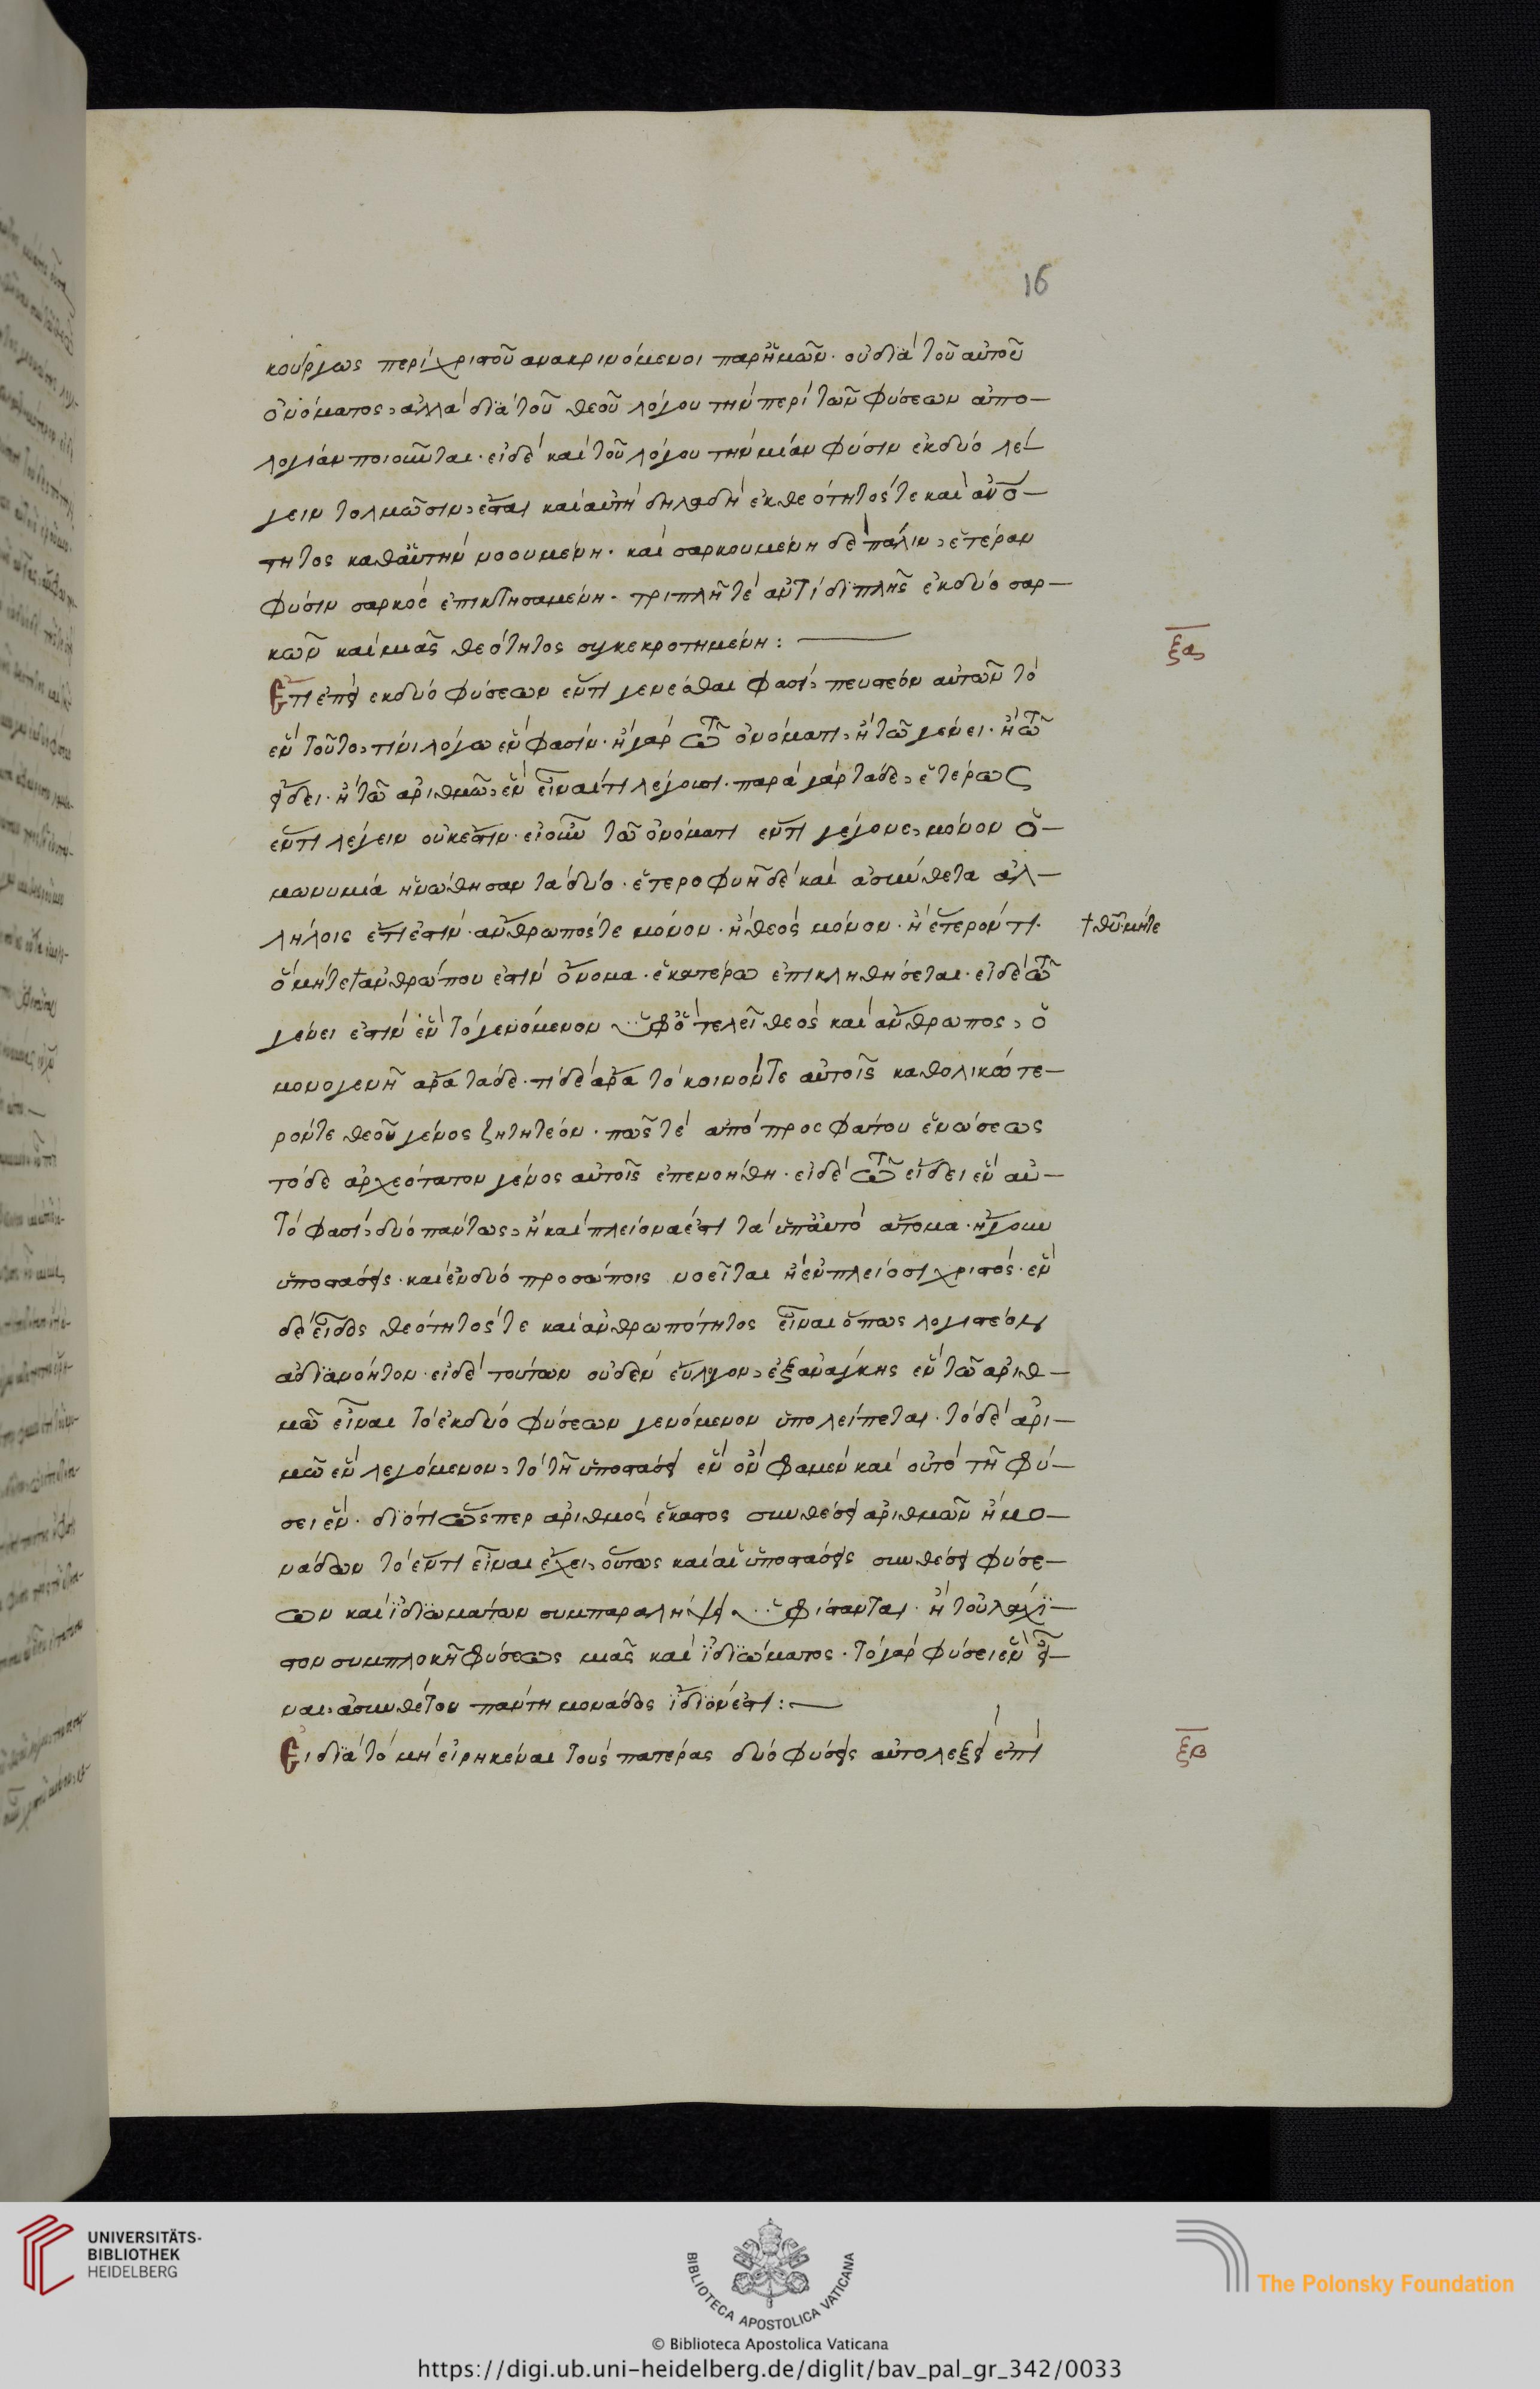 16
κούργως περὶ χριστοῦ ανακρινόμενοι παρἡμῶν· οὐ διὰ τοῦ αὐτοῦ
ὀνόματος, αλλὰ διὰ τοῦ θεοῦ λόγου τὴν περὶ τῶν φύσεων ἀπο-
λογίαν ποιοῦνται· εἰ δὲ καὶ τοῦ λόγου τὴν μίαν φύσιν ἐκ δύο λέ-
γειν τολμῶσιν, ἔσται καὶ αὐτὴ δηλαδὴ ἐκ θεότητός τε καὶ ἀνό-
τητος καθ' ἁυτὴν νοουμένη· καὶ σαρκουμένη δὲ πάλιν, ἑτέραν
φύσιν σαρκὸς ἐπικτησαμένη· τριπλῆ τὲ ἀντὶ διπλῆς ἐκ δύο σαρ-
κῶν καὶ μιᾶς θεότητος συγκεκροτημένη:
ξα
Ἔτι ἐπεὶ εκ δύο φύσεων ἕν τι γενέσθαι φασὶ, πευστέον αὐτῶν τὸ
ἓν τοῦτο, τίνι λόγω ἓν φασίν· ἢ γὰρ τῶ ὀνόματι, ἢ τῶ γένει· ἢ τῶ
εἴδει· ἢ τῶ ἀριθμῶ, ἓν εἶναί τι λέγουσι· παρὰ γὰρ τάδε, ἑτέρως
ἕν τι λέγειν οὐκ ἔστιν· εἰ οὖν τῶ ὀνόματι ἕν τι γέγονε, μόνον ὁ-
μωνυμία ἡνώθησαν τὰ δύο· ἑτεροφυῆ δὲ καὶ ἀσύνθετα ἀλ-
λήλοις ἔτι ἐστίν· ἄνθρωπός τε μόνον· ἢ θεὸς μόνον· ἢ ἕτερόν τι·
† θῦ· μήτε
ὃ μήτε † ἀνθρώπου ἐστὶν ὄνομα· ἑκατέρω ἐπικληθήσεται· εἰ δὲ τῶ
γένει ἐστὶν ἓν τὸ γενόμενον ὑφ' ὃ τελεῖ θεὸς καὶ ἄνθρωπος, ὁ
μογενῆ ἄρα τάδε· τί δὲ ἄρα τὸ κοινόν τε αὐτοῖς καθολικώτε-
ρόν τε θεοῦ γένος ζητητέον· πῶς τὲ ἀπὸ προσφάτου ἑνώσεως
τόδε ἀρχεότατον γένος αὐτοῖς ἐπενοήθη· εἰ δὲ τῶ εἴδει ἓν αὐ-
τό φασὶ, δύο πάντως, ἢ καὶ πλείονα ἐστι τὰ ὑπ' ἀυτὸ ἄτομα· ἤγουν
ὑποστάσεις· καὶ ἐν δυὸ προσώποις νοεῖται ἢ ἐν πλείοσι χριστός· ἓν
δὲ εἶδος θεότητός τε καὶ ἀνθρωπότητος εἶναι ὅπως λογιστέον
ἀδιανόητον· εἰ δὲ τούτων οὐδὲν εὔλογον, ἐξ ανάγκης ἓν τῶ ἀριθ-
μῶ εἶναι τὸ ἐκ δύο φύσεων γενόμενον ὑπολείπεται· τὸ δὲ ἀρι-
μῶ ἓν λεγόμενον, τὸ τῆ ὑποστάσει ἓν ὂν φαμὲν καὶ οὐ τὸ τῆ φύ-
σει ἕν· διότι ὥσπερ ἀριθμὸς ἕκαστος συνθέσει ἀριθμῶν ἢ μο-
νάδων τὸ ἕν τι εἶναι ἔχει, οὕτως καὶ αἱ ὑποστάσεις συνθέσει φύσε-
ων καὶ ἰδιωμάτων συμπαραλήψει ὑφίστανται· ἢ τοὐλάχι-
στον συμπλοκῆ φύσεως μιᾶς καὶ ἰδιώματος· τὸ γὰρ φύσει ἓν εἶ-
ναι, ἀσυνθέτου πάντη μονάδος ἴδιόν ἐστι:
Εἰ διὰ τὸ μὴ εἰρηκέναι τοὺς πατέρας δυὸ φύσεις αὐτολεξεὶ ἐπὶ
ξβ
UNIVERSITÄTS-
BIBLIOTHEK
HEIDELBERG
BIBLIOTECA APOSTOLICA VATICANA
The Polonsky Foundation
© Biblioteca Apostolica Vaticana
https://digi.ub.uni-heidelberg.de/diglit/bav_pal_gr_342/0033